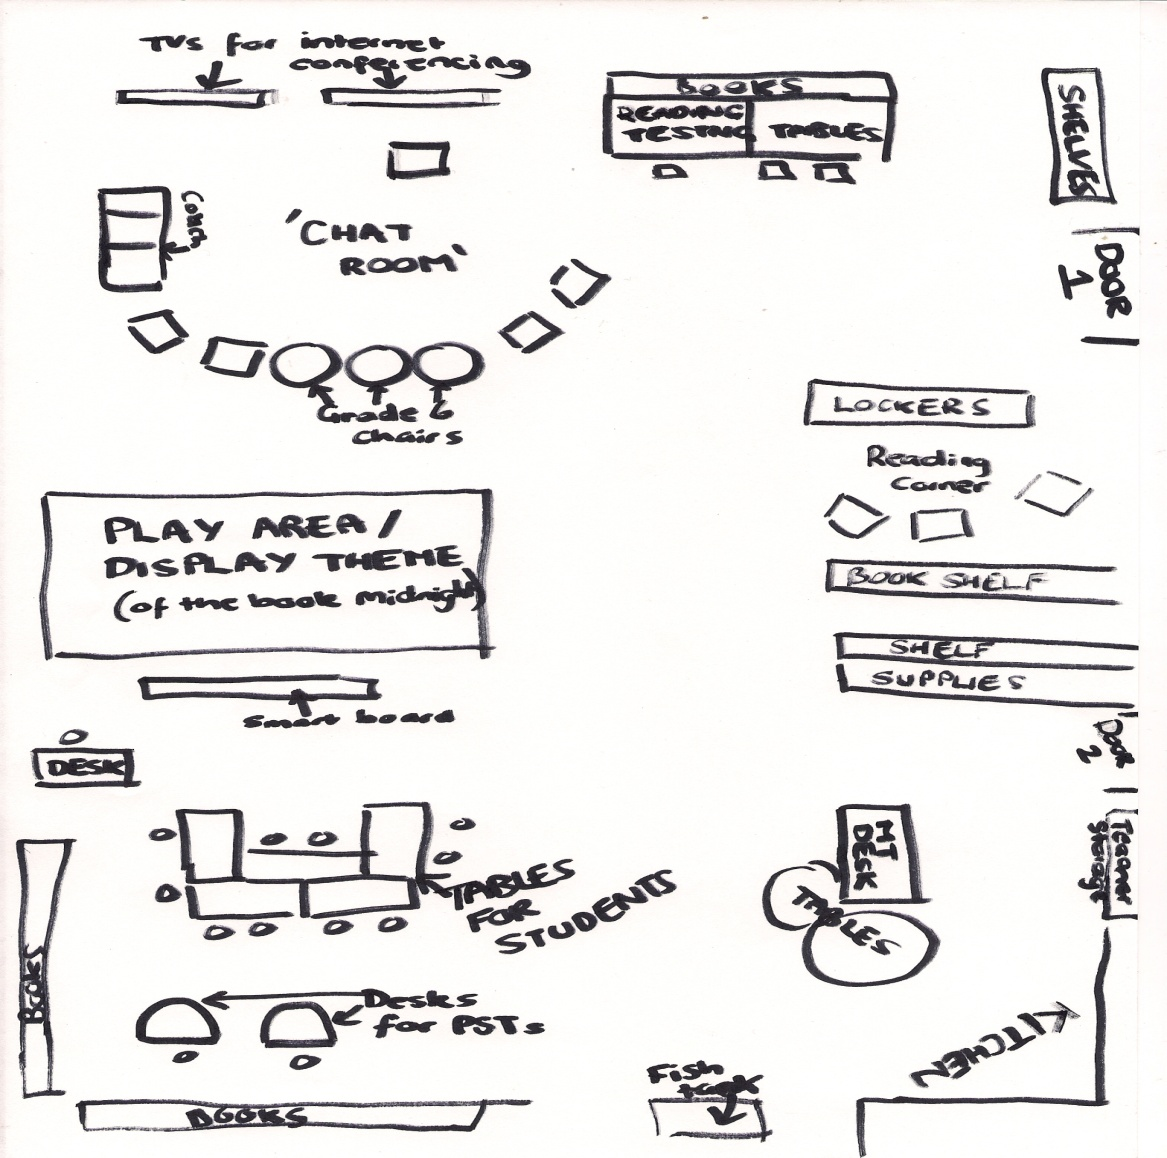 TVs for internet
conferencing
BOOKS
READING
TESTING
TABLES
SHELVES
Couch
'CHAT
ROOM'
DOOR
1
Grade 6
chairs
LOCKERS
Reading
Corner
PLAY AREA /
DISPLAY THEME
(of the book midnight)
BOOK SHELF
SHELF
SUPPLIES
Smart board
Door
2
DESK
MT
DESK
Teacher
Storage
TABLES
FOR
STUDENTS
TABLES
BOOKS
Desks
for PSTs
KITCHEN
Fish
tank
BOOKS